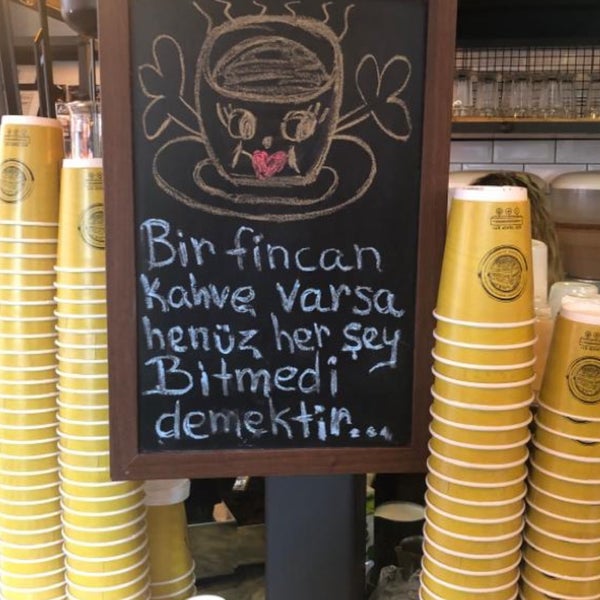 Bir fincan
kahve varsa
henüz her şey
Bitmedi
demektir...